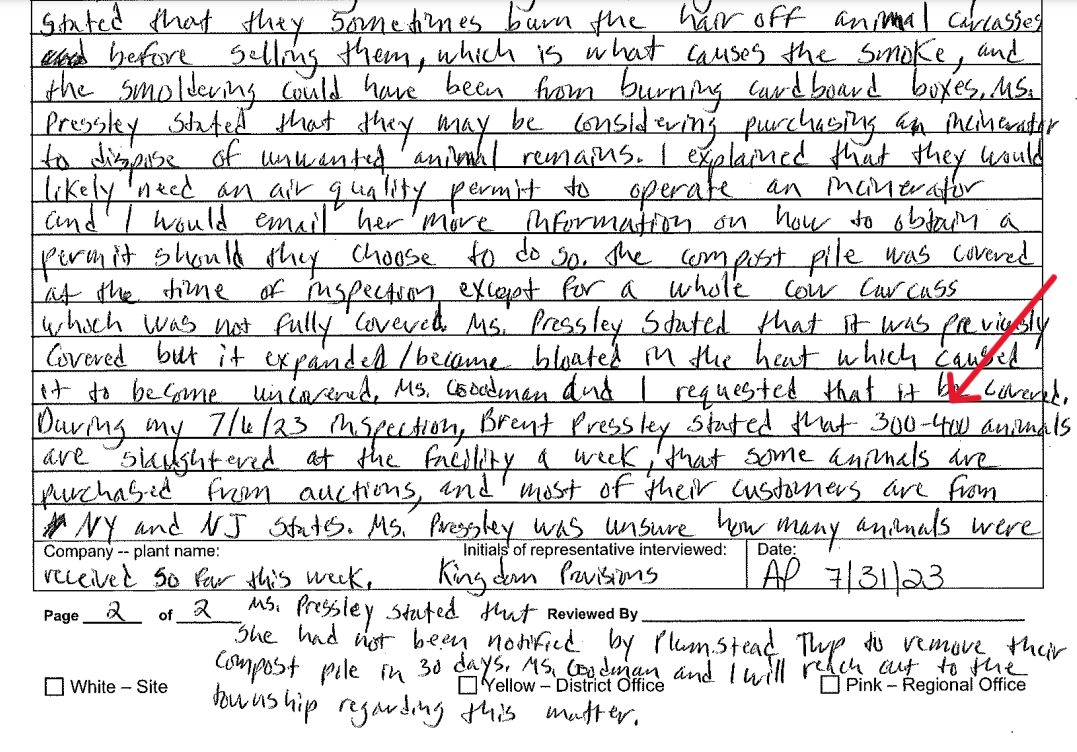 stated that they sometimes burn the hair off animal carcasses
before selling them, which is what causes the smoke, and
the smoldering could have been from burning cardboard boxes. Ms.
Pressley stated that they may be considering purchasing an incinerator
to dispose of unwanted animal remains. I explained that they would
likely need an air quality permit to operate an incinerator
and I would email her more information on how to obtain a
permit should they choose to do so. The compost pile was covered
at the time of inspection except for a whole cow carcass
which was not fully covered. Ms. Pressley stated that it was previously
covered but it expanded/became bloated in the heat which caused
it to become uncovered. Ms. Goodman and I requested that it be covered.
During my 7/6/23 inspection, Brent Pressley stated that 300-400 animals
are slaughtered at the facility a week, that some animals are
purchased from auctions, and most of their customers are from
NY and NJ states. Ms. Pressley was unsure how many animals were
Company -- plant name: Initials of representative interviewed: Date:
received so far this week. Kingdom Provisions AP 7/31/23
Page 2 of 2 Ms. Pressley stated that Reviewed By
she had not been notified by Plumstead Twp to remove their
compost pile in 30 days. Ms. Goodman and I will reach out to the
White – Site Yellow – District Office Pink – Regional Office
township regarding this matter.